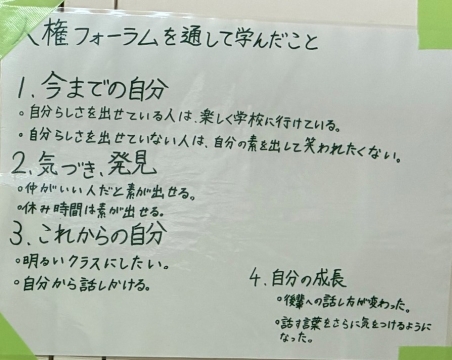 人権フォーラムを通して学んだこと
1. 今までの自分
。自分らしさを出せている人は、楽しく学校に行けている。
。自分らしさを出せていない人は、自分の素を出して笑われたくない。
2. 気づき、発見
。仲がいい人だと素が出せる。
。休み時間は素が出せる。
3. これからの自分
。明るいクラスにしたい。
。自分から話しかける。
4. 自分の成長
。後輩への話し方が変わった。
。話す言葉をさらに気をつけるように
なった。